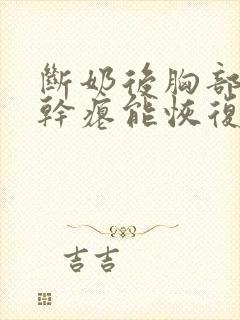 斷奶後胸部
幹癟能恢復
吉吉